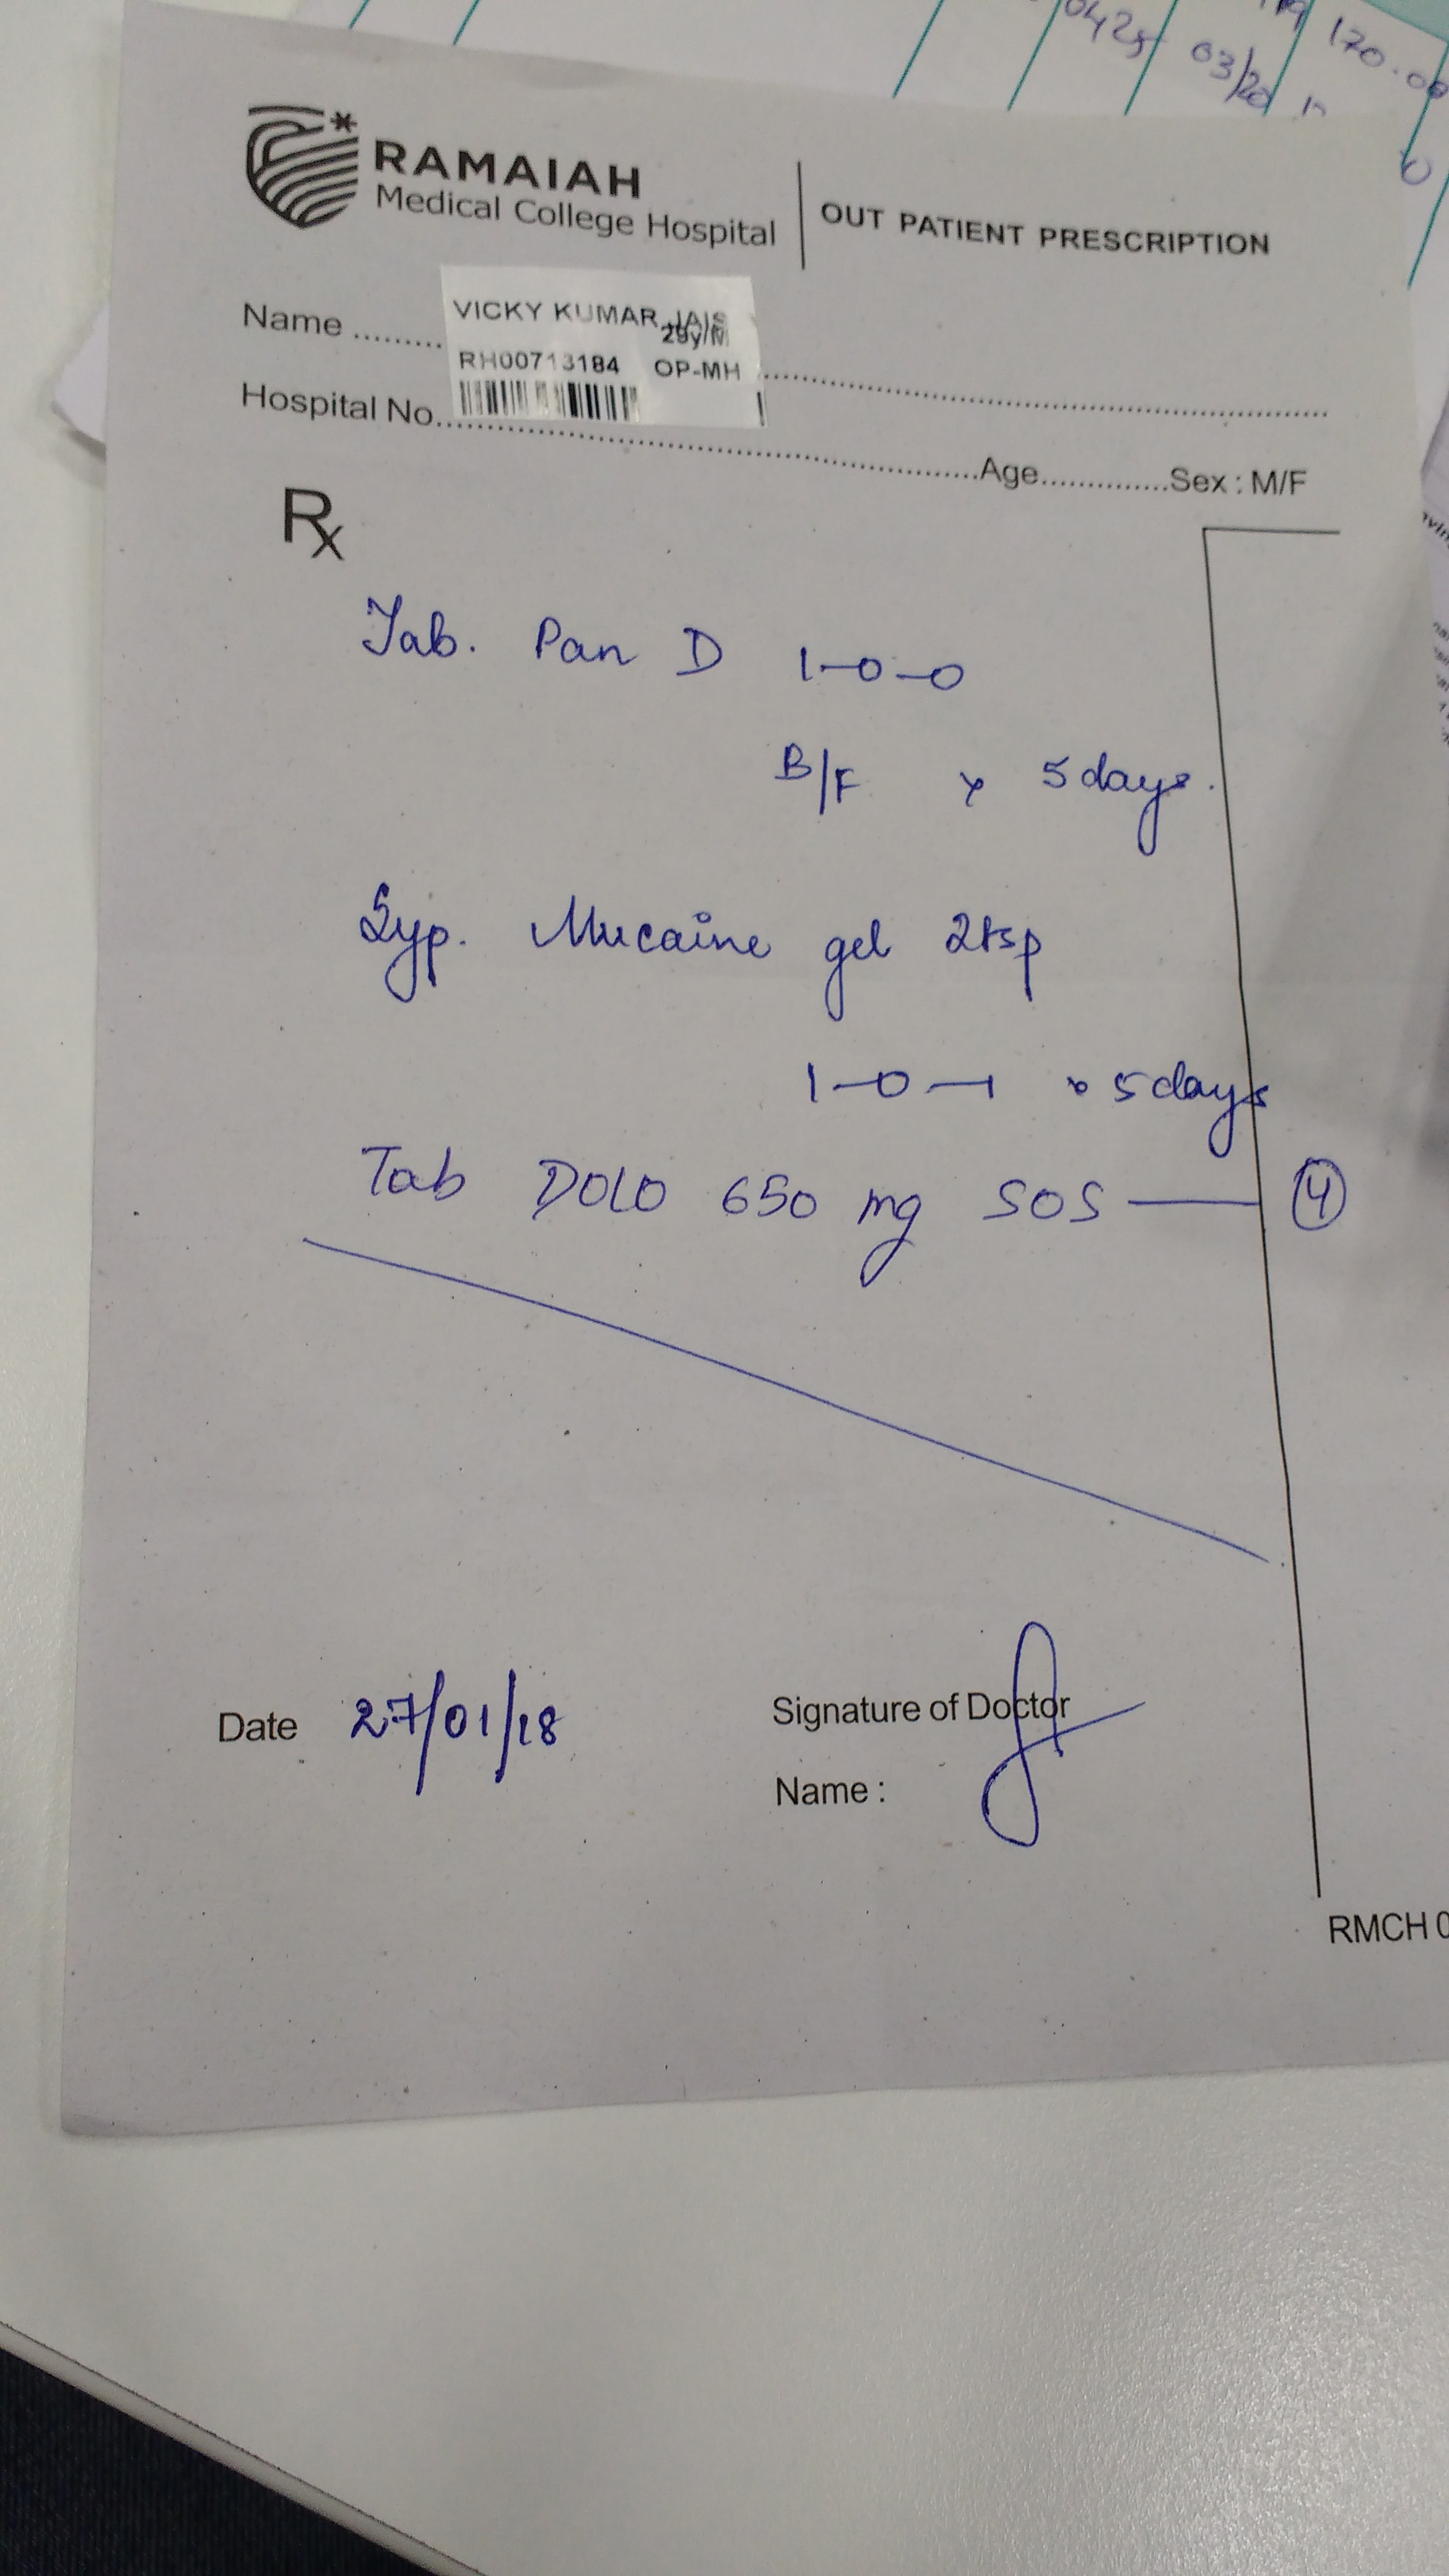 0425 03/20 170.00
RAMAIAH
Medical College Hospital
OUT PATIENT PRESCRIPTION
Name ......... VICKY KUMAR JAIS
29y/M
RH00713184 OP-MH
Hospital No. Age Sex : M/F
Rx
Tab. Pan D 1-0-0
B/F x 5 days.
Syp. Mucaine gel 2tsp
1-0-1 x 5 days
Tab DOLO 650 mg SOS — 4
Date 27/01/18
Signature of Doctor
Name :
RMCH 0